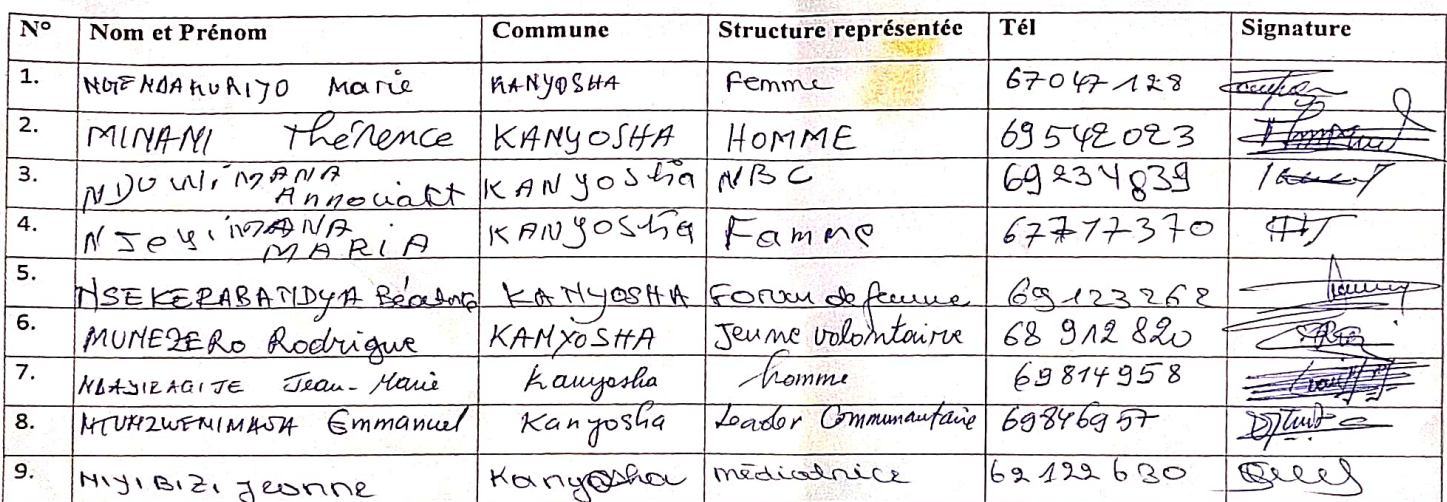 N° Nom et Prénom Commune Structure représentée Tél Signature
1. Marie KANYOSHA Femme 67047128
2. MINANI Thérence KANYOSHA HOMME 69542023
3. KANyosha NBC 69234839
4. MARiA KANyosha Famme 67717370
5. NSEKERABANDYA KANYOSHA Forum de femme 69123262
6. MUNEZERo Rodrigue KANYOSHA Jeune volontaire 68 912 820
7. NDAYIRAGIJE Jean-Marie Kanyosha homme 69814958
8. Emmanuel Kanyosha Leader Communautaire 69846957
9. NIYIBIZI Jeanne Kanyosha médiatrice 62 122 630